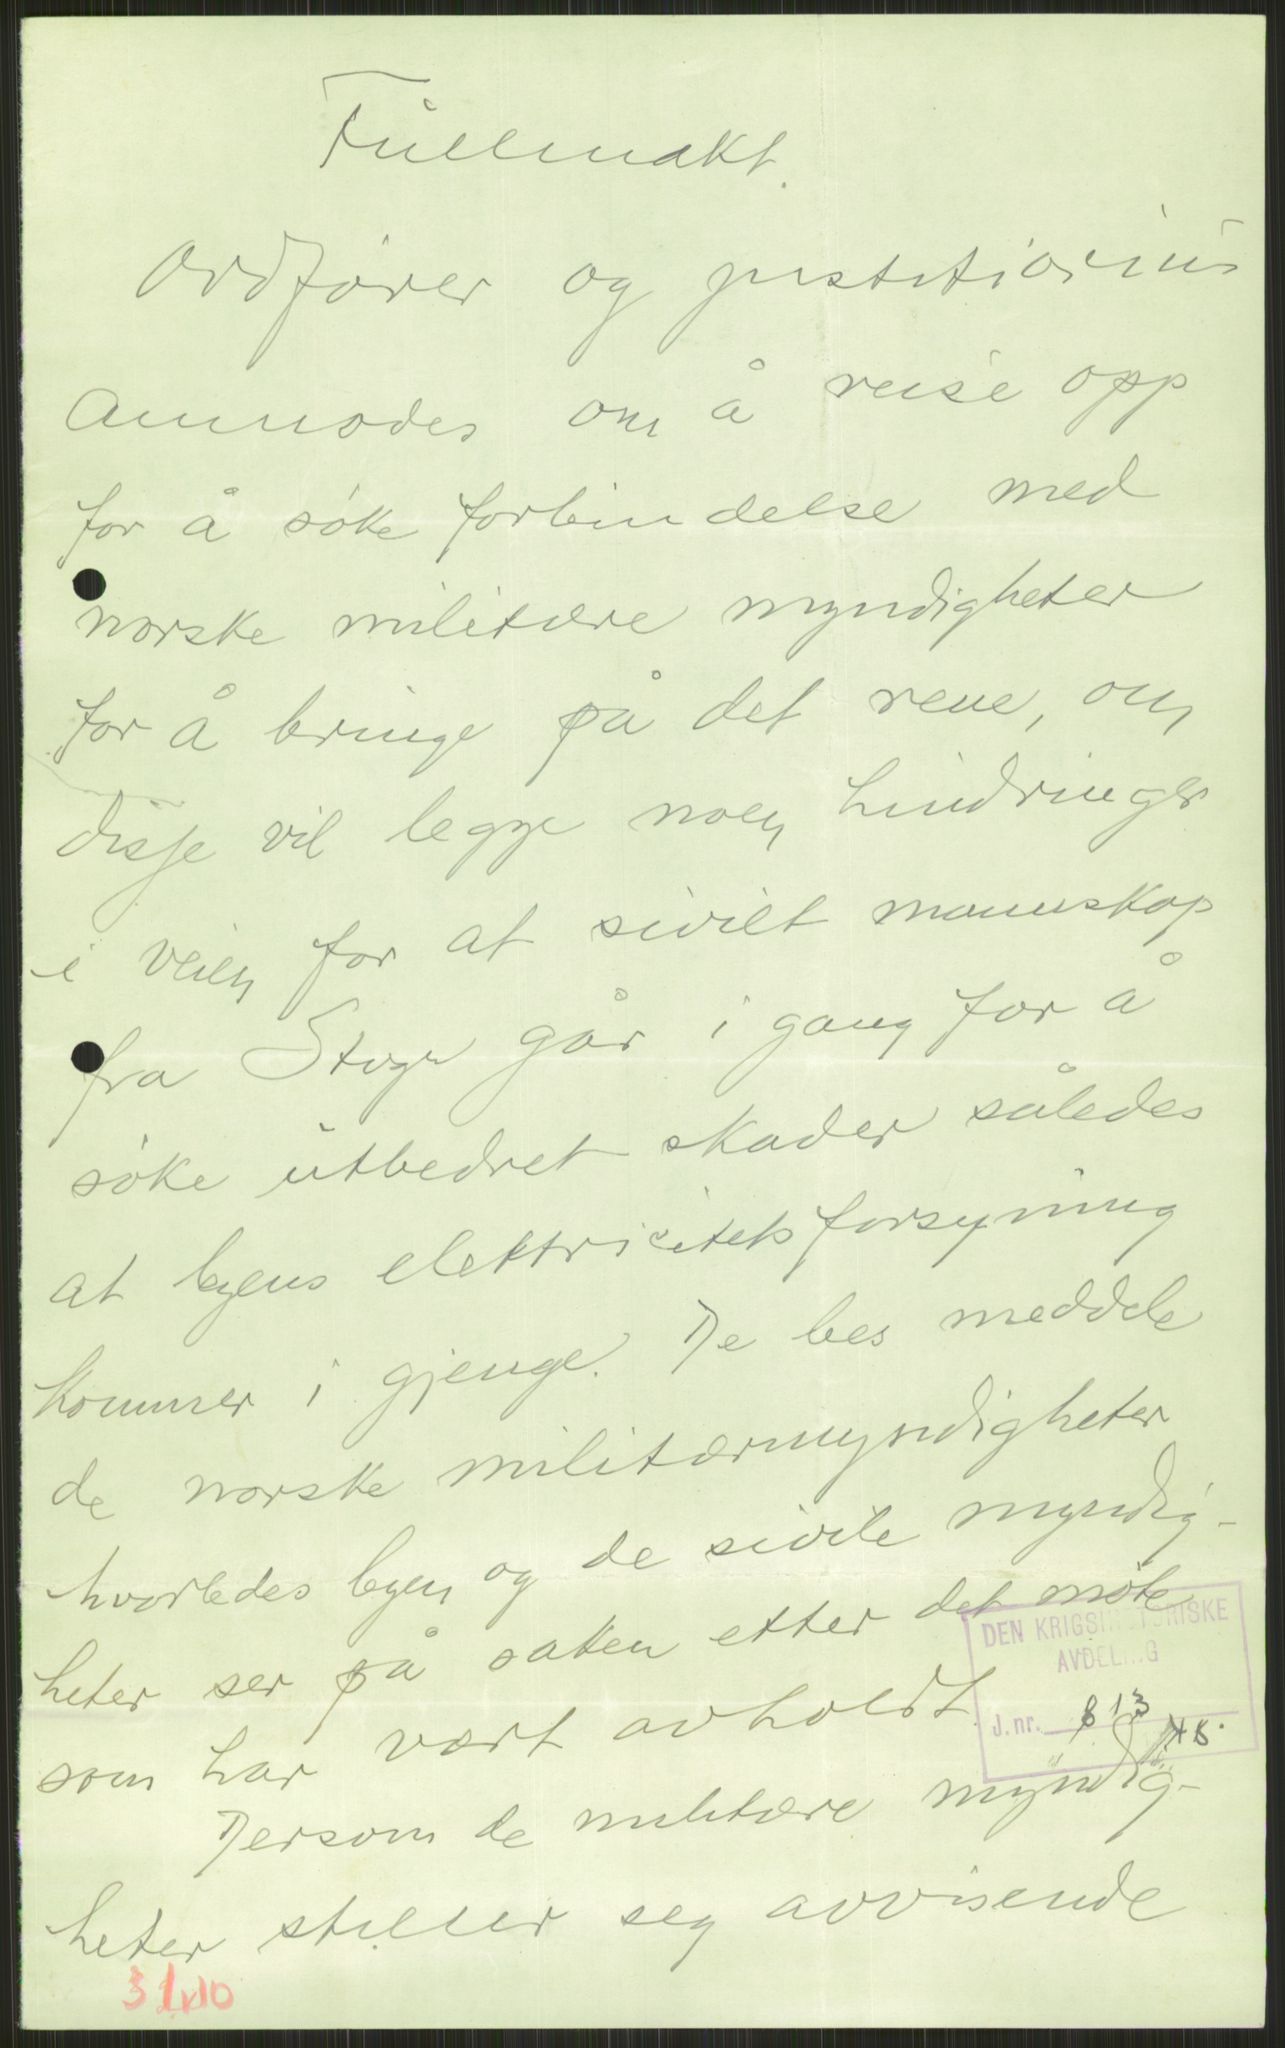 Fullmakt.
Ordfører og justitiarius
anmodes om å reise opp
for å søke forbindelse med
norske militære myndigheter
for å bringe på det rene, om
disse vil legge noen hindringer
i veien for at sivilt mannskap
fra går i gang for å
søke utbedret skader således
at byens elektricitetsforsyning
kommer i gjenge. De bes meddele
de norske militærmyndigheter
hvorledes byen og de sivile myndig-
heter ser på saken etter det møte
som har vært avholdt.
Dersom de militære myndig-
heter stiller seg avvisende
DEN KRIGSHISTORISKE
AVDELING
J. nr. 813